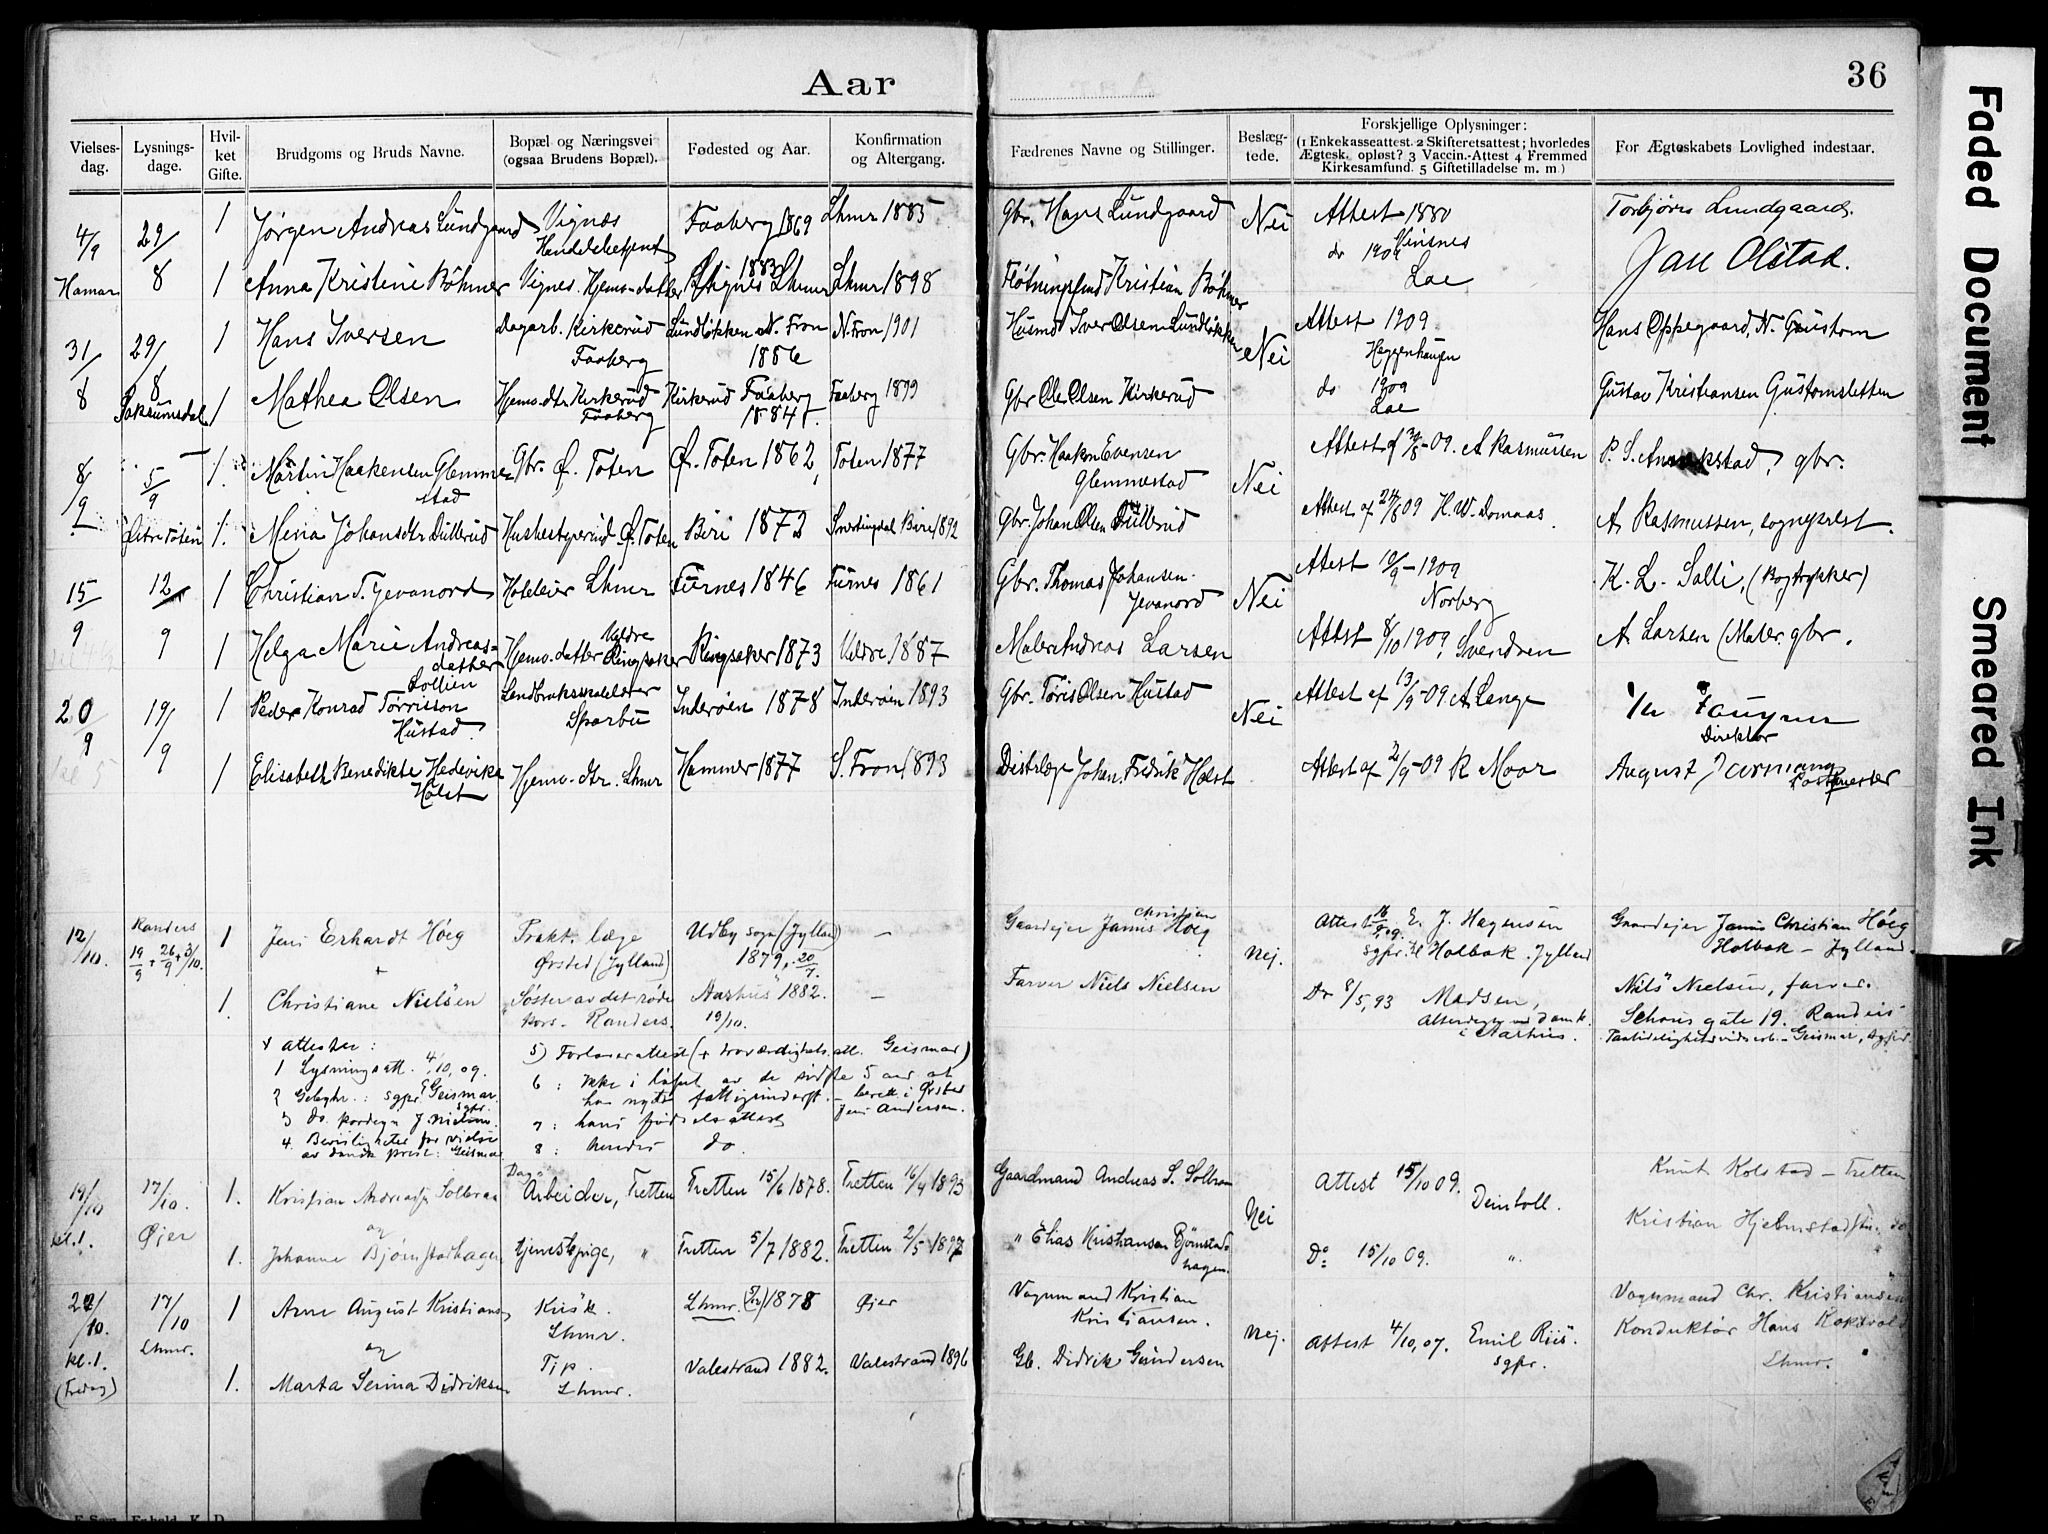 Aar
36
Vielsesdag.
Lysningsdage.
Hvilket Gifte.
Brudgoms og Bruds Navne.
Bopæl og Næringsvei (ogsaa Brudens Bopæl).
Fødested og Aar.
Konfirmation og Altergang.
Fædrenes Navne og Stillinger.
Beslægtede.
Forskjellige Oplysninger: (1 Enkekasseattest. 2 Skifteretsattest; hvorledes Ægtesk. opløst? 3 Vaccin.-Attest 4 Fremmed Kirkesamfund. 5 Giftetilladelse m. m)
For Ægteskabets Lovlighed indestaar.
4/9 29/8 1 Jørgen Andreas Lundgaard Vignæs Faaberg 1869 Lhmr 1885 Gbr. Hans Lundgaard Nei Attest 1880 Torbjørn Lundgaard.
Handelsbetjent do 1909
Hamar 1 Anna Kristine Böhmer Vignes. Hjemv. datter 1883 Lhmr Lhmr 1898 Kristian Böhmer Loe Jan Olstad.
31/8 29/8 1 Hans Iversen Dagarb. Kirkerud Lundløkken N. Fron N. Fron 1901 Husmd Iver Olsen Lundløkken Nei Attest 1909 Hans Oppegaard, N. Gustom
Faaberg 1886 Haggenhaugen
Saksumsdal 1 Mathea Olsen Hjemv. dtr Kirkerud Kirkerud Faaberg Faaberg 1899 Gbr Ole Olsen Kirkerud do 1909 Gustav Kristiansen Gustomsletten
Faaberg 1884. Loe
8/9 5/9 1. Martin Haakensen Glemmestad Gbr. Ø. Toten Ø. Toten 1862, Toten 1877 Gbr. Haakon Evensen Glemmestad Nei Attest af -09. A Rasmussen P. S. gbr.
Østre Toten 1. Mina Johansdtr Dullerud Ø. Toten Biri 1872 Biri 1892 Gbr. Johan Olsen Dullerud Attest af 24/8 09 H. W. Domaas. A Rasmussen, sogneprest.
15/9 12/9 1 Christian T. Jevanord Hoteleier Lhmr Furnes 1846 Furnes 1861 Gbr. Thomas Johansen Jevanord Nei Attest 10/9 - 1909 Norberg K. L. Salli, (Bogtrykker)
1 Helga Marie Andreasdatter Lollien Hjemv. datter Veldre Ringsaker Ringsaker 1873 Veldre 1887 Maler Andreas Larsen Attest 8/10 1909, Svendsen A Larsen (Maler. gbr.
20/9 19/9 1 Peder Konrad Törrisson Hustad. Sparbu Inderøen 1878 Inderøen 1893 Gbr. Töris Olsen Hustad Nei Attest af 13/9 -09 A. Lange
Direktør
kl 5 1 Elisabeth Benedikte Hedevike Holst Hjemv. dtr. Lhmr Hammer 1877 S. Fron 1893 Distrlæge Johan Fredrik Holst Attest af 2/9 -09 K Moar August Postmester
12/10. Randers 19/9 + 26/9 + 3/10. 1 Jens Erhardt Höeg Prakt. læge Udby sogn (Jylland) — Gaardejer Janus Christian Höeg Nej. Attest 16/9 09. E. J. Hagensen Gaardejer Janus Christian Höeg
+ Ørsted (Jylland) 1879, 20/7. sgpr. til Holbæk. Jylland Holbæk – Jylland.
1. Christiane Nielsen Søster av det røde kors. Randers. Aarhus 1882. 19/10. — Farver Niels Nielsen Do 8/5, 93 Madsen, Niels Nielsen, farver.
i Aarhus. gate 19. Randers
Geismar, sgpr.
+ attester:
1 Lysningsatt. 4/10, 09.
2 sgpr. Geismar.
3 Do.
4. Beviligheter for vielse
av dansk prest: Geismar
5) (+ troværdighets att. Geismar)
6: Ikke i løpet av de sidste 5 aar at
han nydt fattigunderst. – berett. i Ørsted
Jens Andersen.
7: hans fødselsattest
8: hendes do.
19/10 17/10. 1. Kristian Andreas Solbraa Dag Arbeider, Tretten Tretten 15/6 1878. Tretten 16/4 1893 Gaardmand Andreas S. Solbraa Nei Attest 15/10 09. Deinboll. Knut Kolstad – Tretten
kl. 1. Øjer og
1. Johanne Bjørnstadhagen tjenestpige, " Tretten 5/7 1882. Tretten 2/5 1897 " Elias Kristiansen Bjørnstadhagen. Do: 15/10 09. " Kristian Hjelmstadstu. do
22/10. 17/10 1 Arne August Kristiansen Lhmr. Lhmr. 1878 Øjer Vognmand Kristian Kristiansen. Nej. Attest 4/10, 07. Emil Riis. sgpr. Vognmand Chr. Kristiansen
kl. 1. Lhmr. og Konduktør Hans
(Fredag) 1. Marta Serina Didriksen Lhmr. Valestrand 1882. Valestrand 1896 Gb. Didrik Gundersen Lhmr.
Faded Document
Smeared Ink